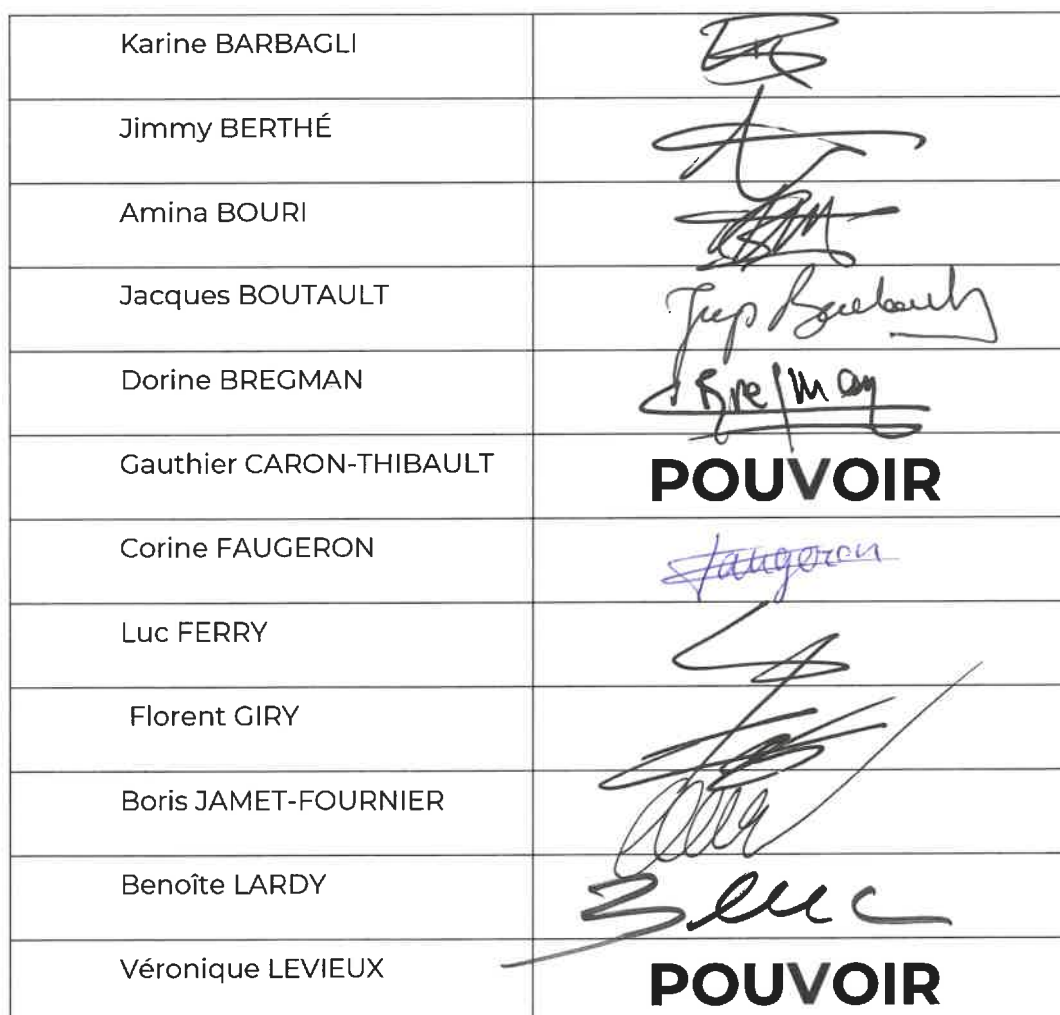 Karine BARBAGLI
Jimmy BERTHÉ
Amina BOURI
Jacques BOUTAULT
Dorine BREGMAN
Bregman
Gauthier CARON-THIBAULT
POUVOIR
Corine FAUGERON
Faugeron
Luc FERRY
Florent GIRY
Boris JAMET-FOURNIER
Benoîte LARDY
Véronique LEVIEUX
POUVOIR